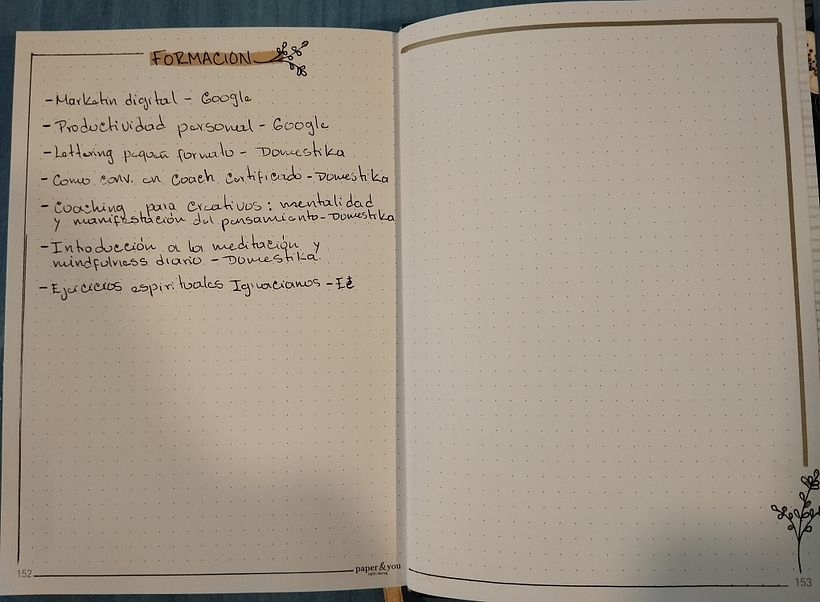 FORMACION
- Marketin digital - Google
- Productividad personal - Google
- Lettering pequeñ formato - Domestika
- Como conv. en Coach Certificado - Domestika
- Coaching para creativos: mentalidad
y manifestación del pensamiento - Domestika
- Introducción a la meditación y
mindfulness diario - Domestika.
- Ejercicios espirituales Ignacianos -
152
paper&you
153